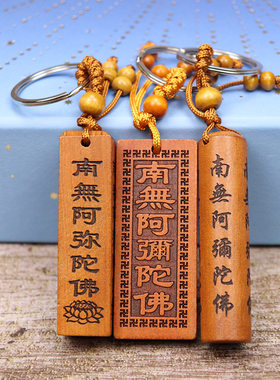 南無阿弥陀佛
南無阿彌陀佛
南無阿彌陀佛